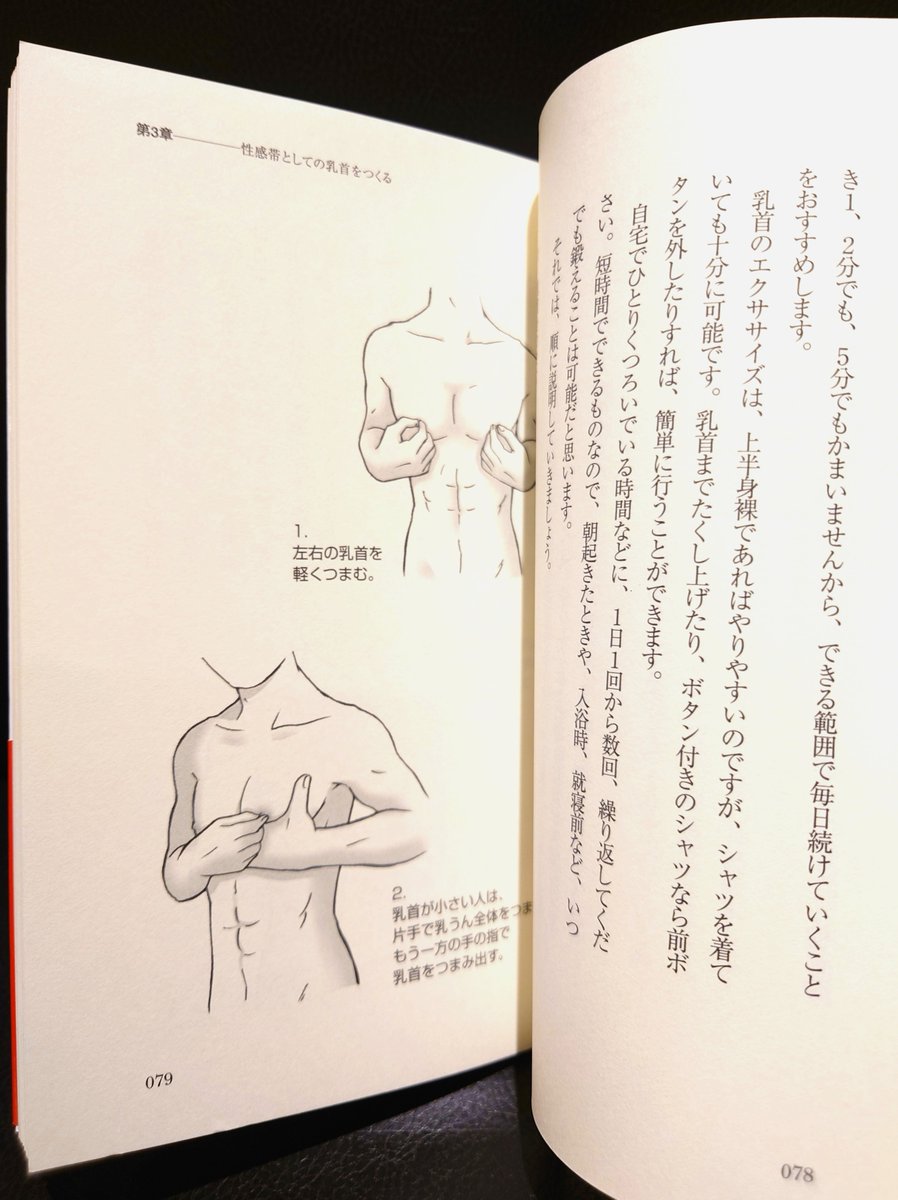 き1、2分でも、5分でもかまいませんから、できる範囲で毎日続けていくこと
をおすすめします。
乳首のエクササイズは、上半身裸であればやりやすいのですが、シャツを着て
いても十分に可能です。乳首までたくし上げたり、ボタン付きのシャツなら前ボ
タンを外したりすれば、簡単に行うことができます。
自宅でひとりくつろいでいる時間などに、1日1回から数回、繰り返してくだ
さい。短時間でできるものなので、朝起きたときや、入浴時、就寝前など、いつ
でも鍛えることは可能だと思います。
それでは、順に説明していきましょう。
078
第3章
性感帯としての乳首をつくる
1.
左右の乳首を
軽くつまむ。
2.
乳首が小さい人は、
片手で乳うん全体をつま
もう一方の手の指で
乳首をつまみ出す。
079